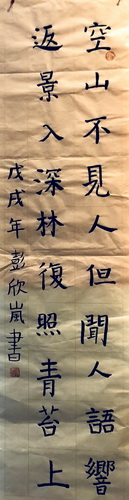 空山不見人但聞人語響
返景入深林復照青苔上
戊戌年彭欣嵐書